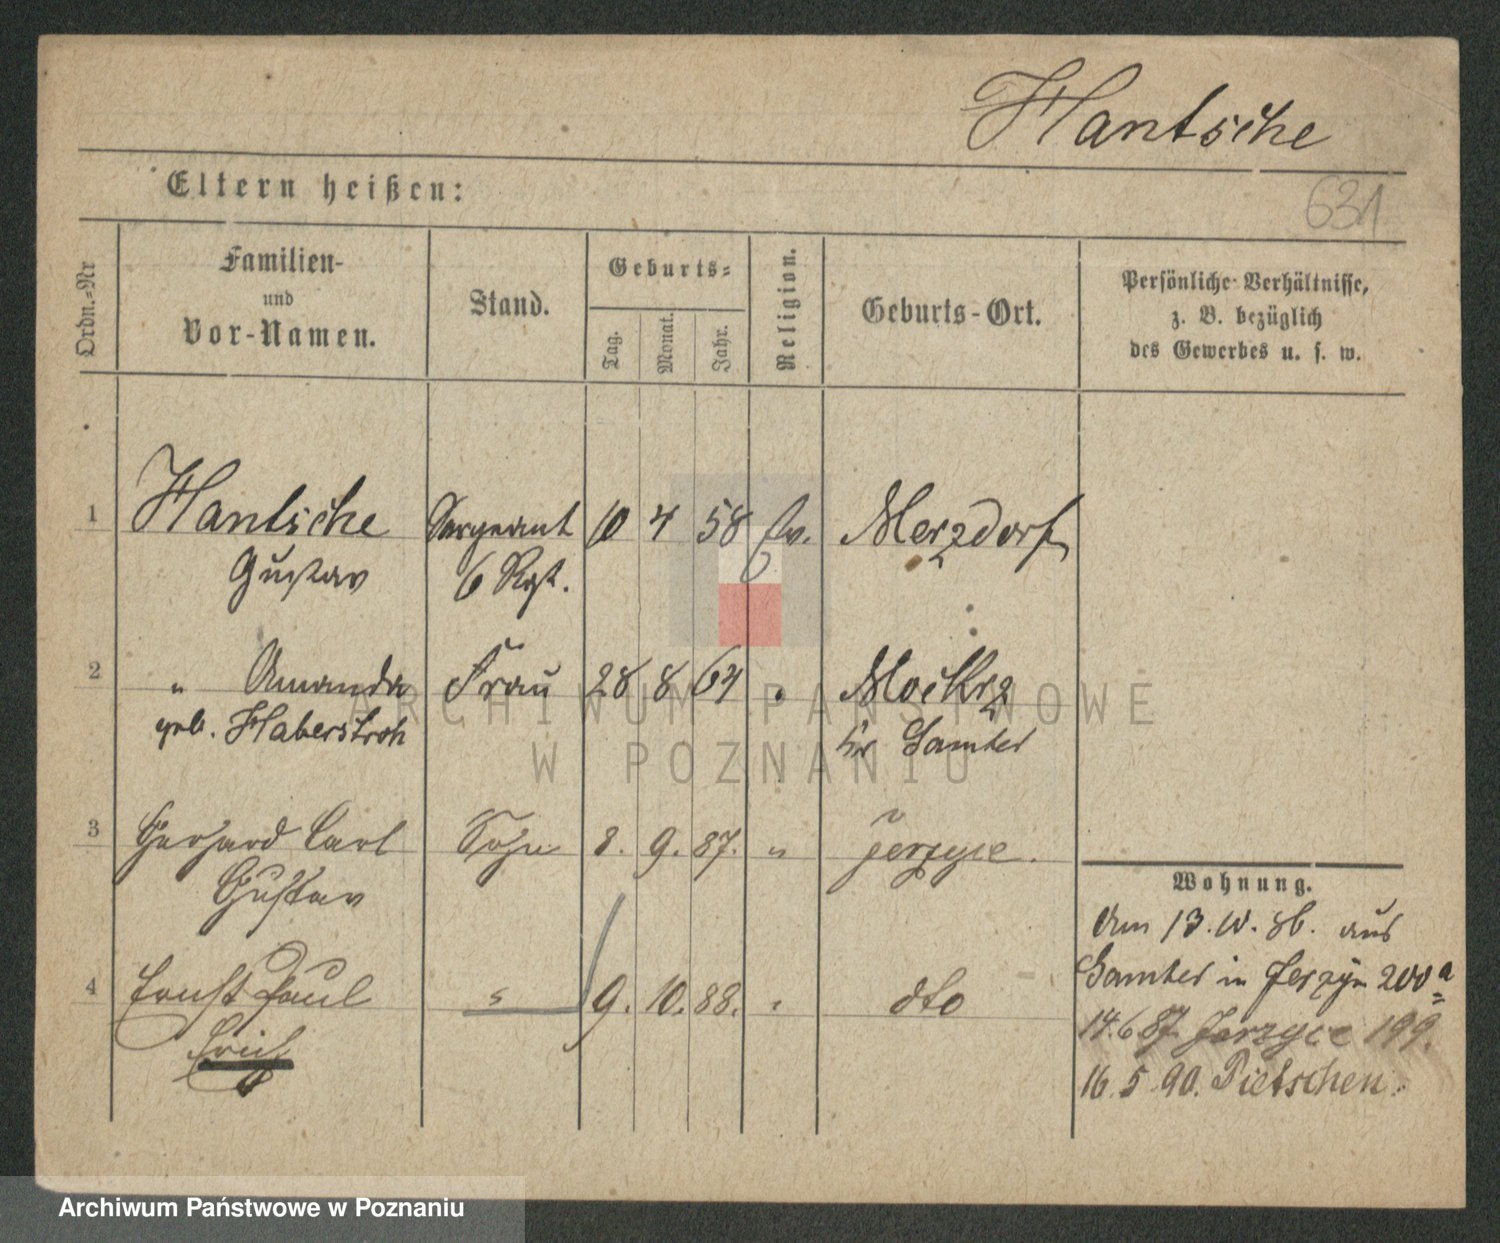 Hantsche
631
Eltern heißen:
Ordn.=Nr
Familien-
und
Vor-Namen.
Stand.
Geburts=
Tag.
Monat.
Jahr.
Religion.
Geburts-Ort.
Persönliche Verhältnisse,
z. B. bezüglich
des Gewerbes u. s. w.
1 Hantsche Sergeant 10 4 58 Ev. Merzdorf
Gustav 6 Rgt.
2 " Amanda Frau 28 8 64 " Mockrz
geb. Haberstroh Kr Samter
3 Gerhard Carl Sohn 8. 9. 87. " Jerzyce.
Gustav
4 Ernst Paul " 9. 10. 88. " dto
Erich
Wohnung.
Am 13. 10. 86. aus
Samter in Jerzyce 200a
14.6 87. Jerzyce 199.
16. 5 90. Pietschen.
ARCHIWUM PAŃSTWOWE
W POZNANIU
Archiwum Państwowe w Poznaniu